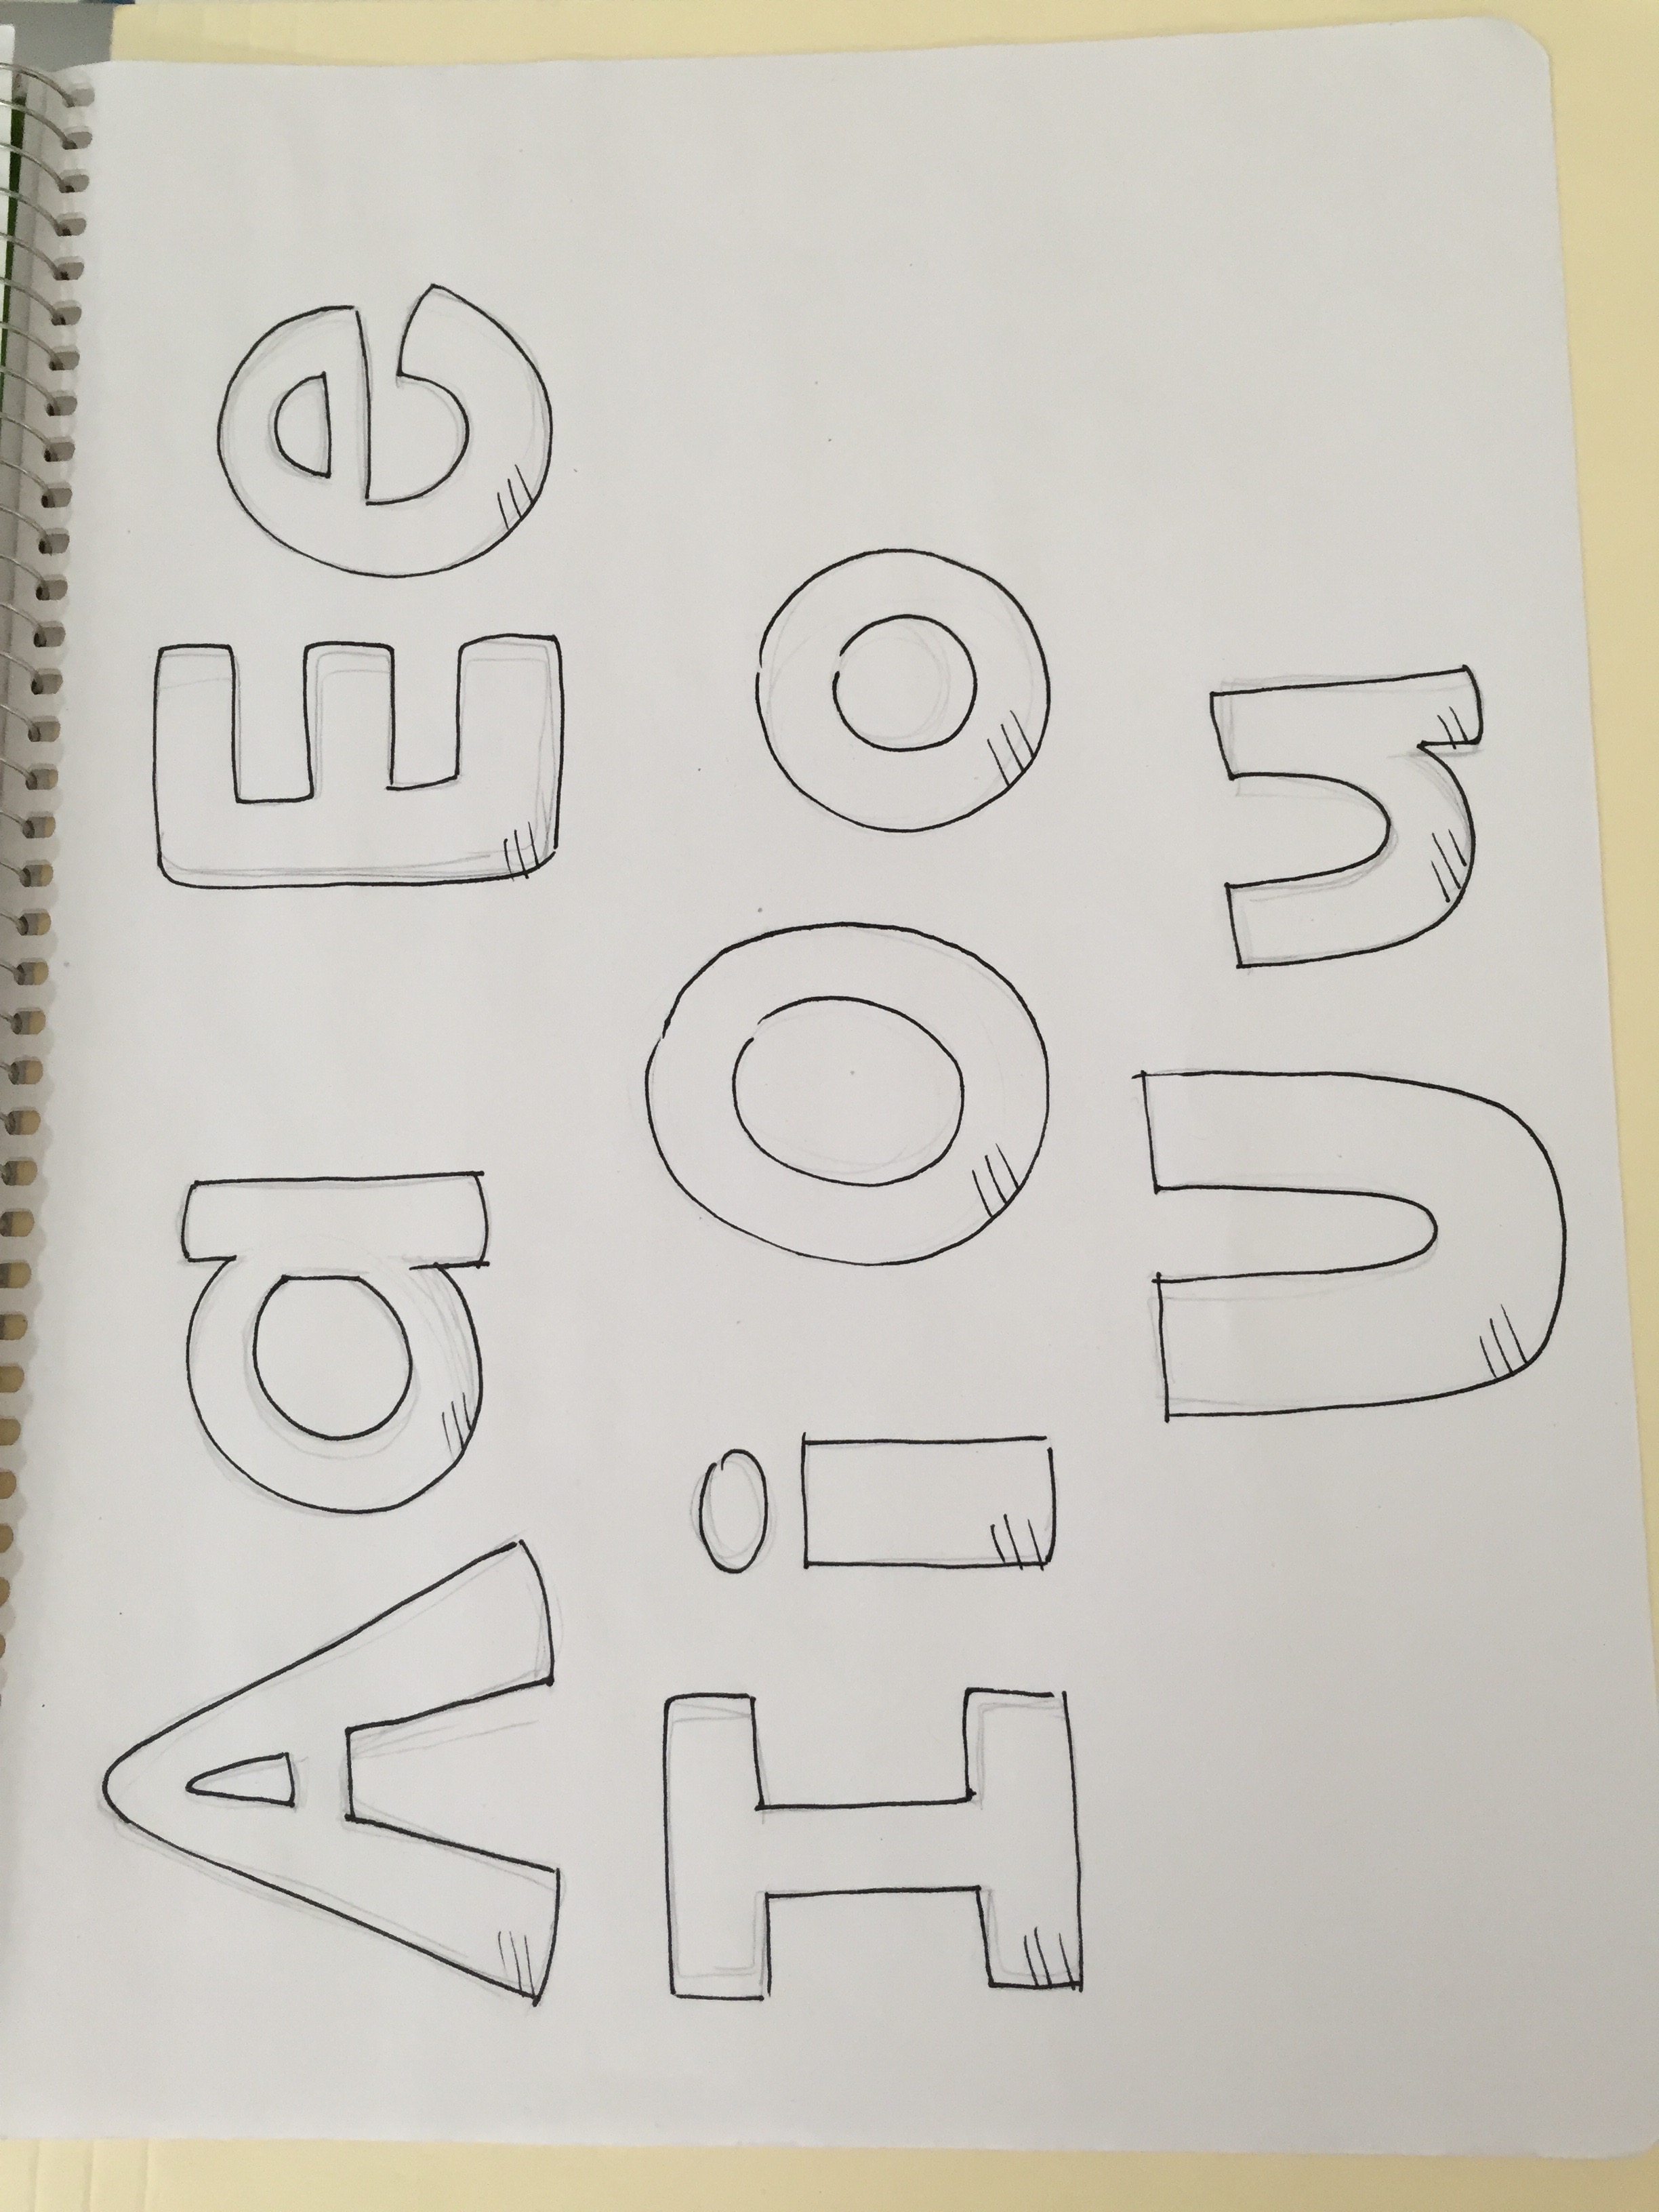 Aa Ee
Ii Oo
Uu